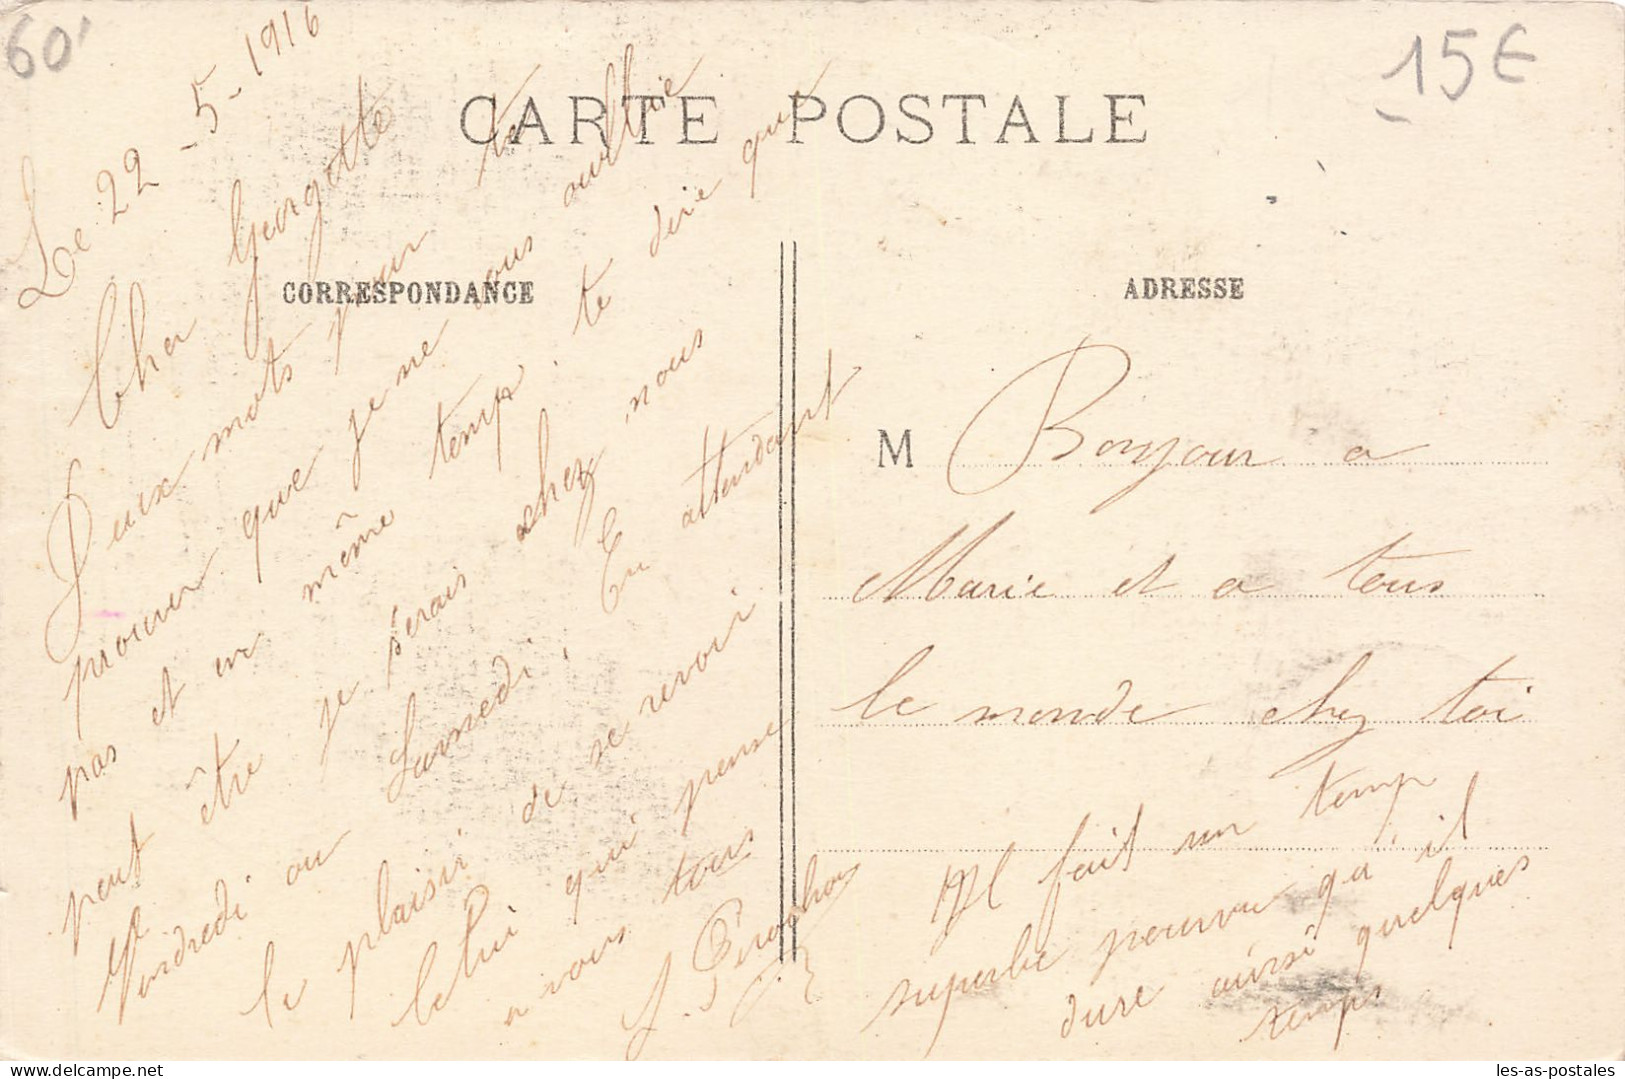 60'
15€
CARTE POSTALE
CORRESPONDANCE
ADRESSE
Le 22-5-1916
Cher Georgette
Deux mots pour te
prouver que je ne vous oublie
pas et en même temps. te dire que
peut être je serais chez nous
Vendredi ou Samedi. En attendant
le plaisir de se revoir
celui qui pense
a vous tous
J.
M Bonjour a
Marie et a tous
le monde chez toi
Il fait un temp
superbe pourvu qu'il
dure ainsi quelques
temps
delcampe.net
les-as-postales